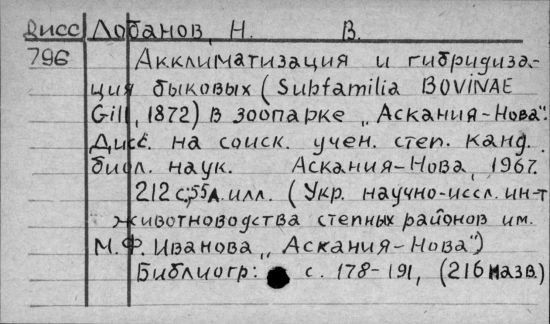 Дисс Лобанов, Н. В.
796 Акклиматизация и гибридиза-
ция быковых (Subfamilia BOVINAE
Gill, 1872) в зоопарке „Аскания-Нова".
Дисс. на соиск. учен. степ. канд.
биол. наук. Аскания-Нова, 1967.
212 с; 55 л. илл. (Укр. научно-иссл. ин-т
животноводства степных районов им.
М.Ф. Иванова „Аскания-Нова")
Библиогр: с. 178-191, (216 назв)